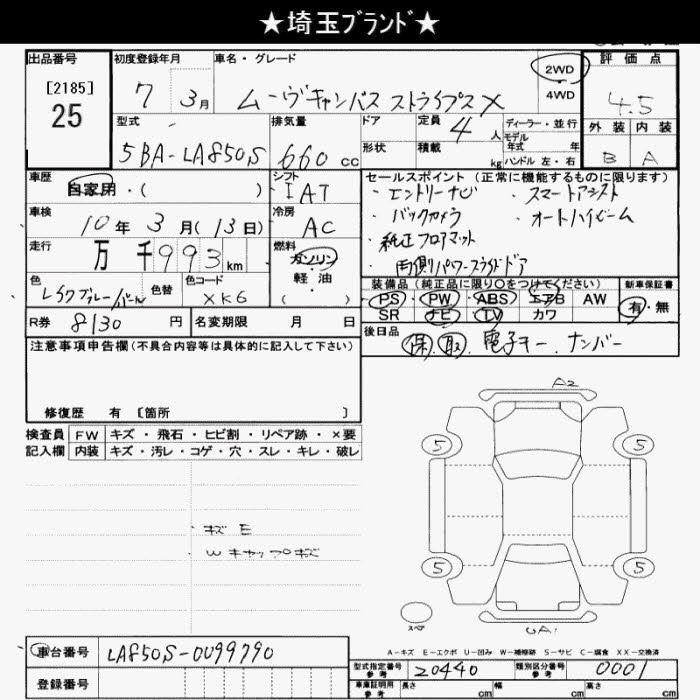 ★埼玉ブランド★
出品番号
[2185]
25
初度登録年月
7 3月
車名・グレード
ムーヴキャンバス ストライプス X
2WD
4WD
評価点
4.5
外装 内装
B A
型式
5BA-LA850S
排気量
660 cc
ドア
形状
定員
4人
積載 kg
ディーラー・並行
モデル年式 年
ハンドル 左・右
車歴
自家用・( )
シフト
IAT
車検
10年 3月(13日)
冷房
AC
走行
万千993km
燃料
ガソリン
軽・油
( )
色
色替
色コード
XK6
セールスポイント(正常に機能するものに限ります)
・エントリーナビ ・スマートアシスト
・バックカメラ ・オートハイビーム
・純正フロアマット
・両側パワースライドドア
装備品(純正品に限り○をつけてください)
PS PW ABS エアB AW
SR ナビ TV カワ
新車保証書
有・無
R券 8130 円
名変期限 月 日
後日品
保.取.電子キー.ナンバー
注意事項申告欄(不具合内容等は具体的に記入して下さい)
修復歴 有 [箇所 ]
検査員
記入欄
FW キズ・飛石・ヒビ割・リペア跡・×要
内装 キズ・汚レ・コゲ・穴・スレ・キレ・破レ
キズ E
W キャップキズ
A2
5 5
5 5
スペア
A-キズ E-エクボ U-凹み W-補修跡 S-サビ C-腐食 XX-交換済
車台番号 LA850S-0099790
登録番号
型式指定番号
参考
20440
類別区分番号
参考
0001
車庫証明用
参考
長さ cm 幅 cm 高さ cm